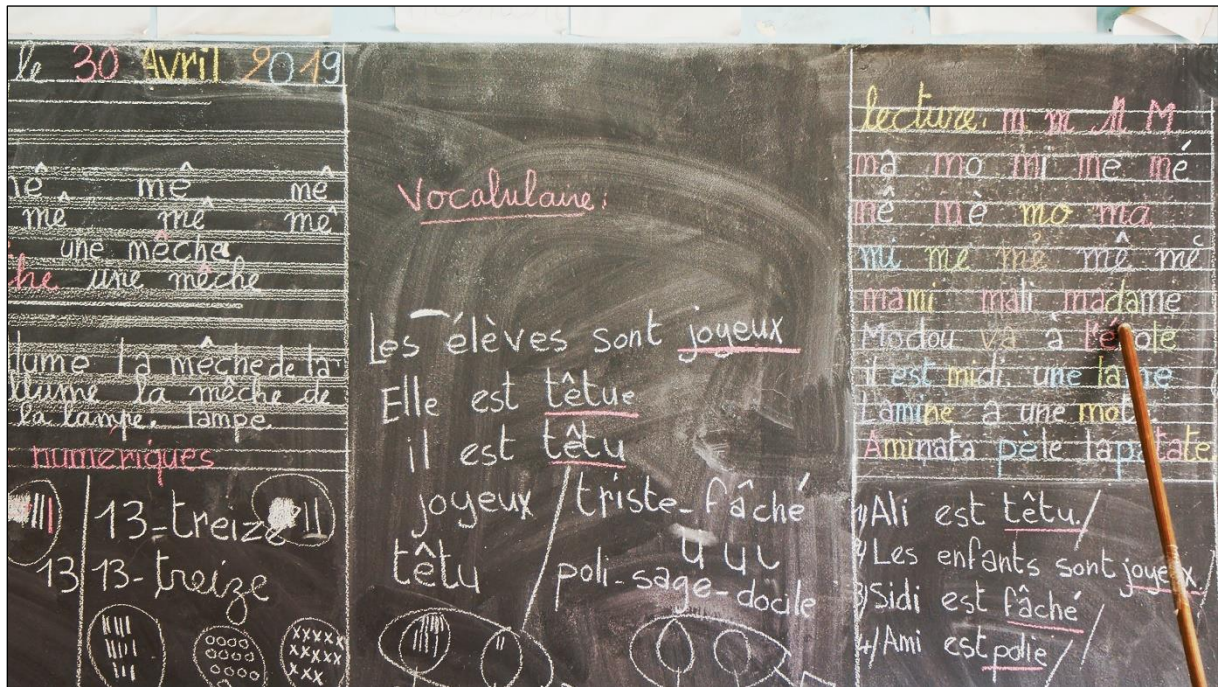 le 30 Avril 2019
mê mê
mê mê mê
une mêche
une mêche
la mêche de la
la mêche de
la lampe. lampe.
numériques
13=treize
13 13-treize
Vocabulaire:
Les élèves sont joyeux
Elle est têtue
il est têtu
joyeux / triste-fâché
têtu / poli-sage-docile
lecture: m m M M
ma mo mi me mé
mê mè mo ma
mi me mé mê mé
mami mali madame
Modou va à l'école
il est midi. une lame
Lamine a une
Aminata pèle la patate
1/ Ali est têtu./
2/ Les enfants sont joyeux.
3/ Sidi est fâché /
4/ Ami est polie /